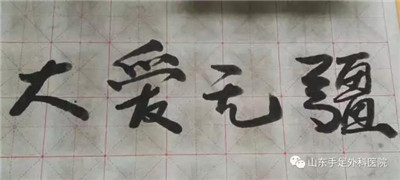 大爱无疆
山东手足外科医院